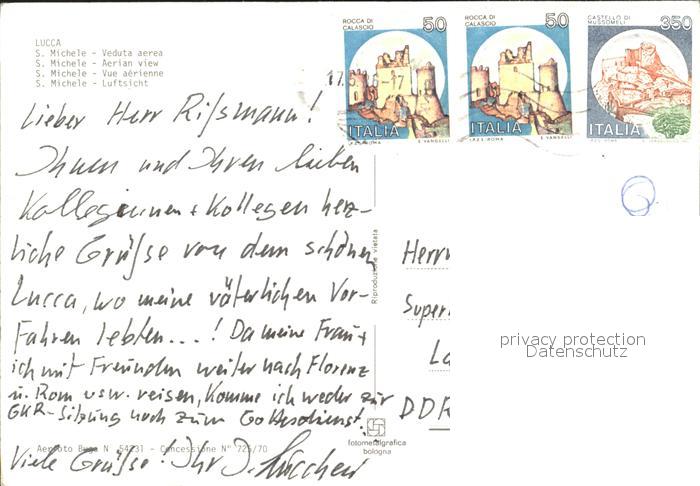 LUCCA
S. Michele - Veduta aerea
S. Michele - Aerian view
S. Michele - Vue aérienne
S. Michele - Luftsicht
ROCCA DI CALASCIO
50
ITALIA
I.P.Z.S. ROMA E. VANGELLI
ROCCA DI CALASCIO
50
ITALIA
I.P.Z.S. ROMA E. VANGELLI
CASTELLO DI MUSSOMELI
350
ITALIA
Lieber Herr Rißmann!
Ihnen und Ihren lieben
Kolleginnen + Kollegen herz-
liche Grüße von dem schönen
Lucca, wo meine väterlichen Vor-
fahren lebten...! Da meine Frau +
ich mit Freunden weiter nach Florenz
u. Rom usw. reisen, komme ich weder zur
GKR-Sitzung noch zum Gottesdienst.
Viele Grüße! Ihr J.
Riproduzione vietata
Herrn
Super
La
DDR
privacy protection
Datenschutz
Aerfoto N 54231 - Concessione N° 725/70
fotometalgrafica
bologna